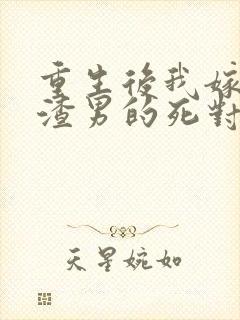 重生後我嫁
渣男的死對
天星婉如